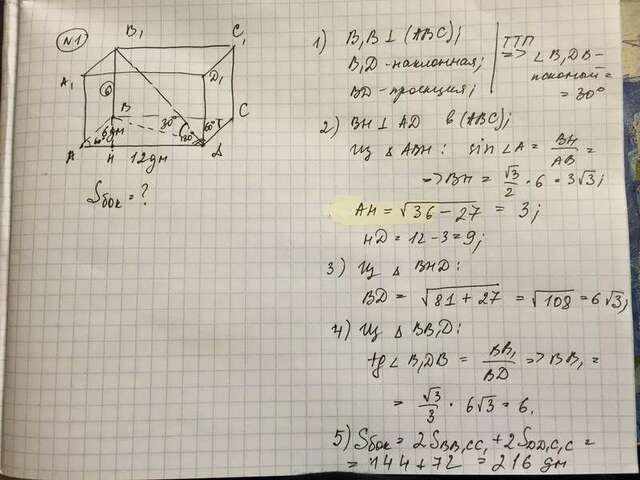 N1
B₁
C₁
A₁
D₁
6
B
30°
C
6дм
60°
30°
60°
A
H
12дм
D
Sбок = ?
1) B₁B ⊥ (ABC);
B₁D - наклонная;
BD - проекция;
ТТП
=> ∠B₁DB -
искомый =
= 30°
2) BH ⊥ AD в (ABC);
Из △ ABH: sin∠A = BH/AB =
=> BH = √3/2 · 6 = 3√3;
AH = √36 - 27 = 3;
HD = 12 - 3 = 9;
3) Из △ BHD:
BD = √81 + 27 = √108 = 6√3;
4) Из △ BB₁D:
tg∠B₁DB = BB₁/BD => BB₁ =
= √3/3 · 6√3 = 6.
5) Sбок = 2S BB₁CC₁ + 2S DD₁C₁C =
= 144 + 72 = 216 дм